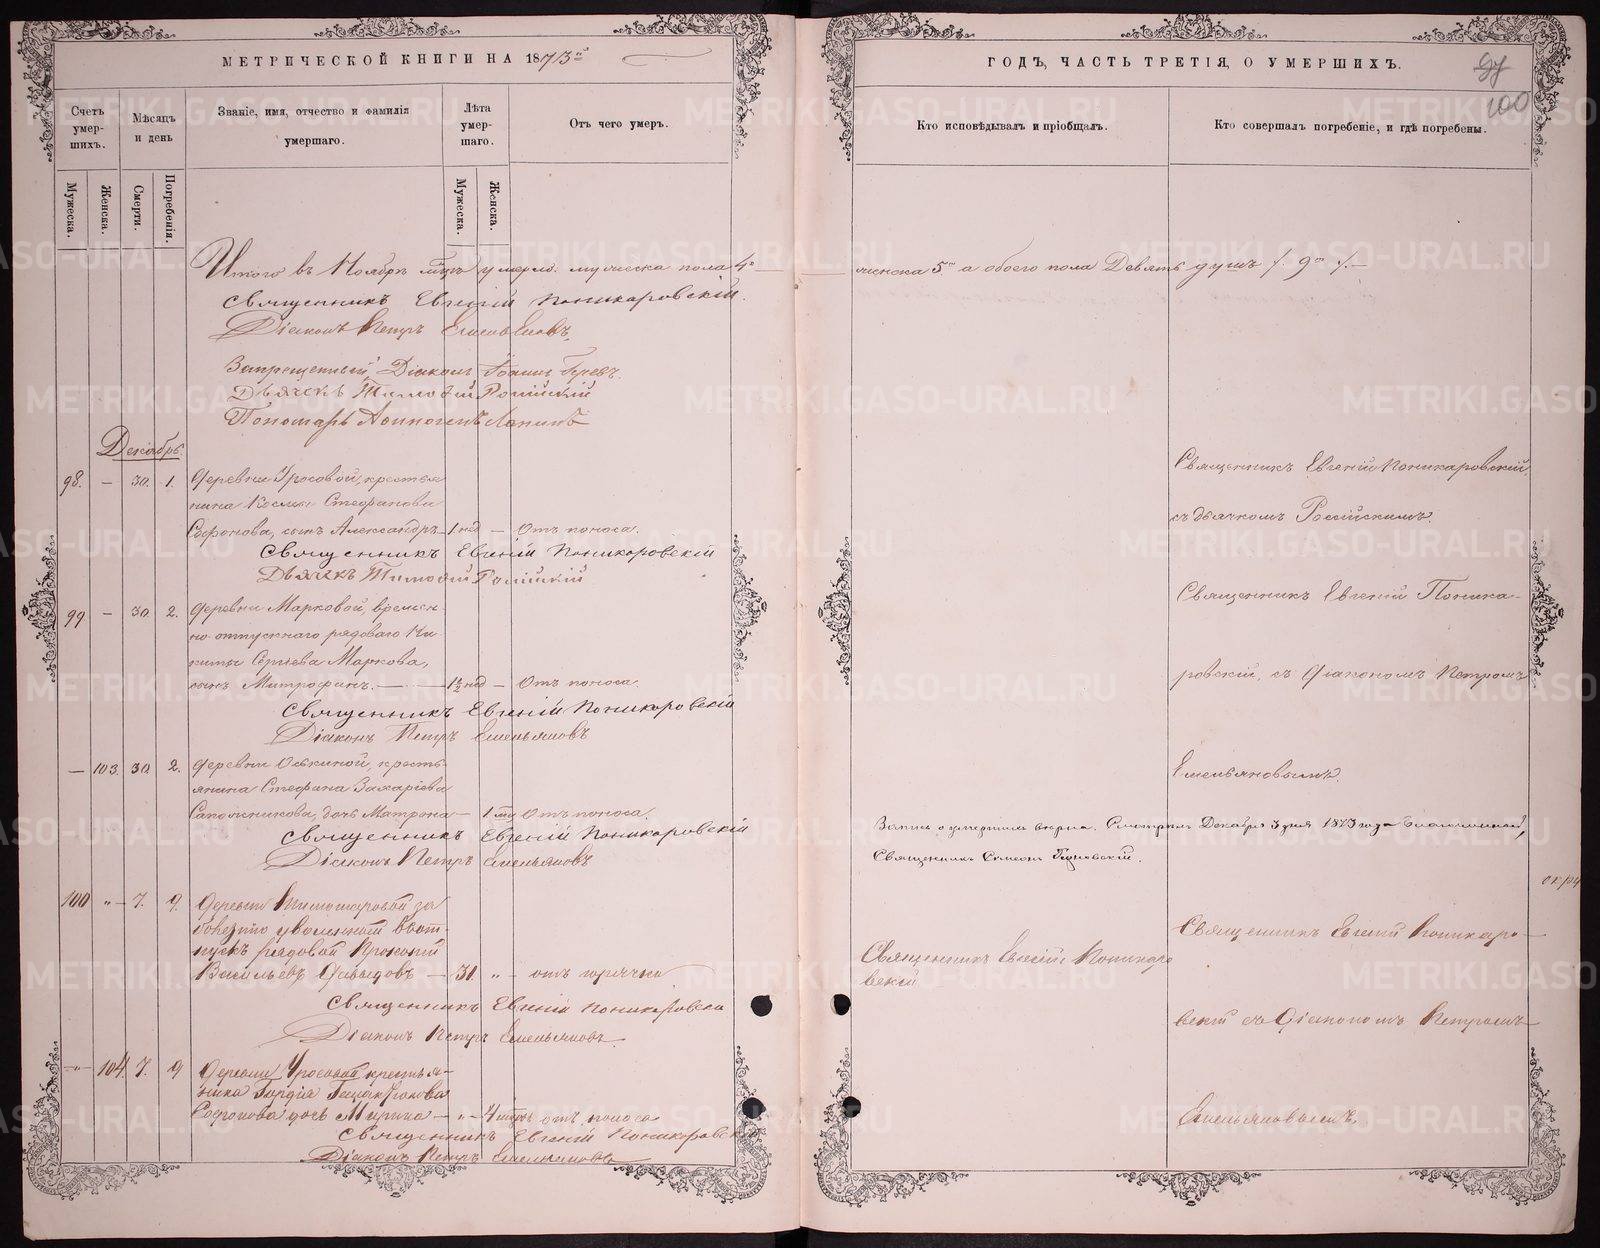 МЕТРИЧЕСКОЙ КНИГИ НА 1873й
Счетъ умершихъ.
Мѣсяцъ и день
Званіе, имя, отчество и фамилія умершаго.
Лѣта умершаго.
Отъ чего умеръ.
Мужеска.
Женска.
Смерти.
Погребенія.
Мужеска.
Женска.
Итого въ Ноябрѣ умерло мужеска пола 4
Священникъ Евгеній Поникаровскій.
Діаконъ Петръ Емельяновъ.
Запрещенный Діаконъ Іоаннъ
Дьячекъ Тимоѳей Россійскій
Пономарь Лапинъ
Декабрь.
98. — 30. 1. деревни Уросовой, крестья
нина Космы Стефанова
Софонова, сынъ Александръ — 1 нед — Отъ поноса.
Священникъ Евгеній Поникаровскій
Дьячекъ Тимоѳей Россійскій
99 — 30. 2. деревни Марковой, времен
но-отпускнаго рядоваго Ни
киты Сергѣева Маркова,
сынъ Митрофанъ. — 1½ нед — Отъ поноса.
Священникъ Евгеній Поникаровскій
Діаконъ Петръ Емельяновъ
— 103. 30. 2. деревни Оськиной, кресть
янина Стефана Захаріева
Сапожникова, дочь Матрона — 1 Отъ поноса.
Священникъ Евгеній Поникаровскій
Діаконъ Петръ Емельяновъ
100 „ — 7. 9. деревни
уволенный въ от
пускъ рядовой Прокопій
Васильевъ Давыдовъ — 31. „ — отъ горячки
Священникъ Евгеній Поникаровскій
Діаконъ Петръ Емельяновъ.
— „ — 104. 7. 9 деревни Уросовой крестья
нина Гордія
Софонова дочь — „ — 4 отъ поноса
Священникъ Евгеній Поникаровскій
Діаконъ Петръ Емельяновъ
ГОДЪ, ЧАСТЬ ТРЕТІЯ, О УМЕРШИХЪ.
97
100
Кто исповѣдывалъ и пріобщалъ.
Кто совершалъ погребеніе, и гдѣ погребены.
женска 5 а обоего пола Девять душъ /. 9 ./. —
Священникъ Евгеній Поникаровскій,
съ дьячкомъ Россійскимъ.
Священникъ Евгеній Поника-
ровскій, съ діакономъ Петромъ
Емельяновымъ.
Запись о умершихъ вѣрна. Декабря 3 дня 1873 года Благочинный,
Священникъ Симеонъ
Священникъ Евгеній Поникаро
вскій
Священникъ Евгеній Поникаро —
вскій съ Діакономъ Петромъ
Емельяновымъ
METRIKI.GASO-URAL.RU